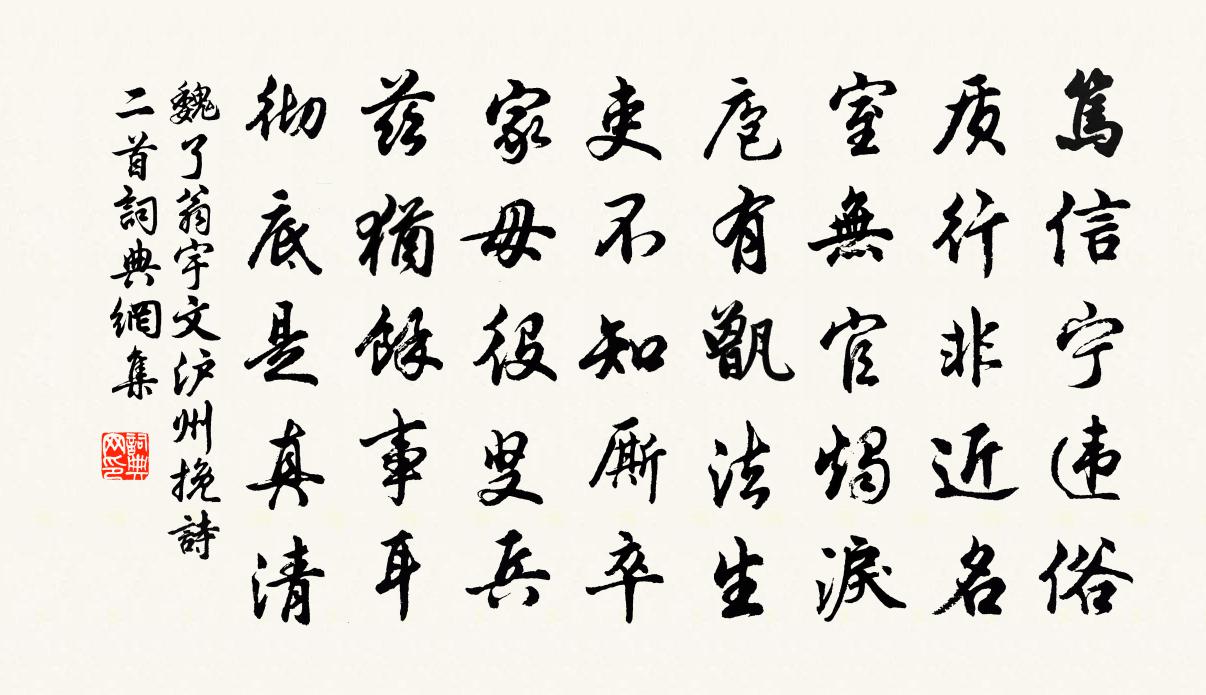 篤信宁违俗
质行非近名
室無官燭淚
庖有甑法生
吏不知厮卒
家毋役叟兵
兹猶餘事耳
彻底是真清
魏了翁宇文泸州挽詩
二首詞典網集